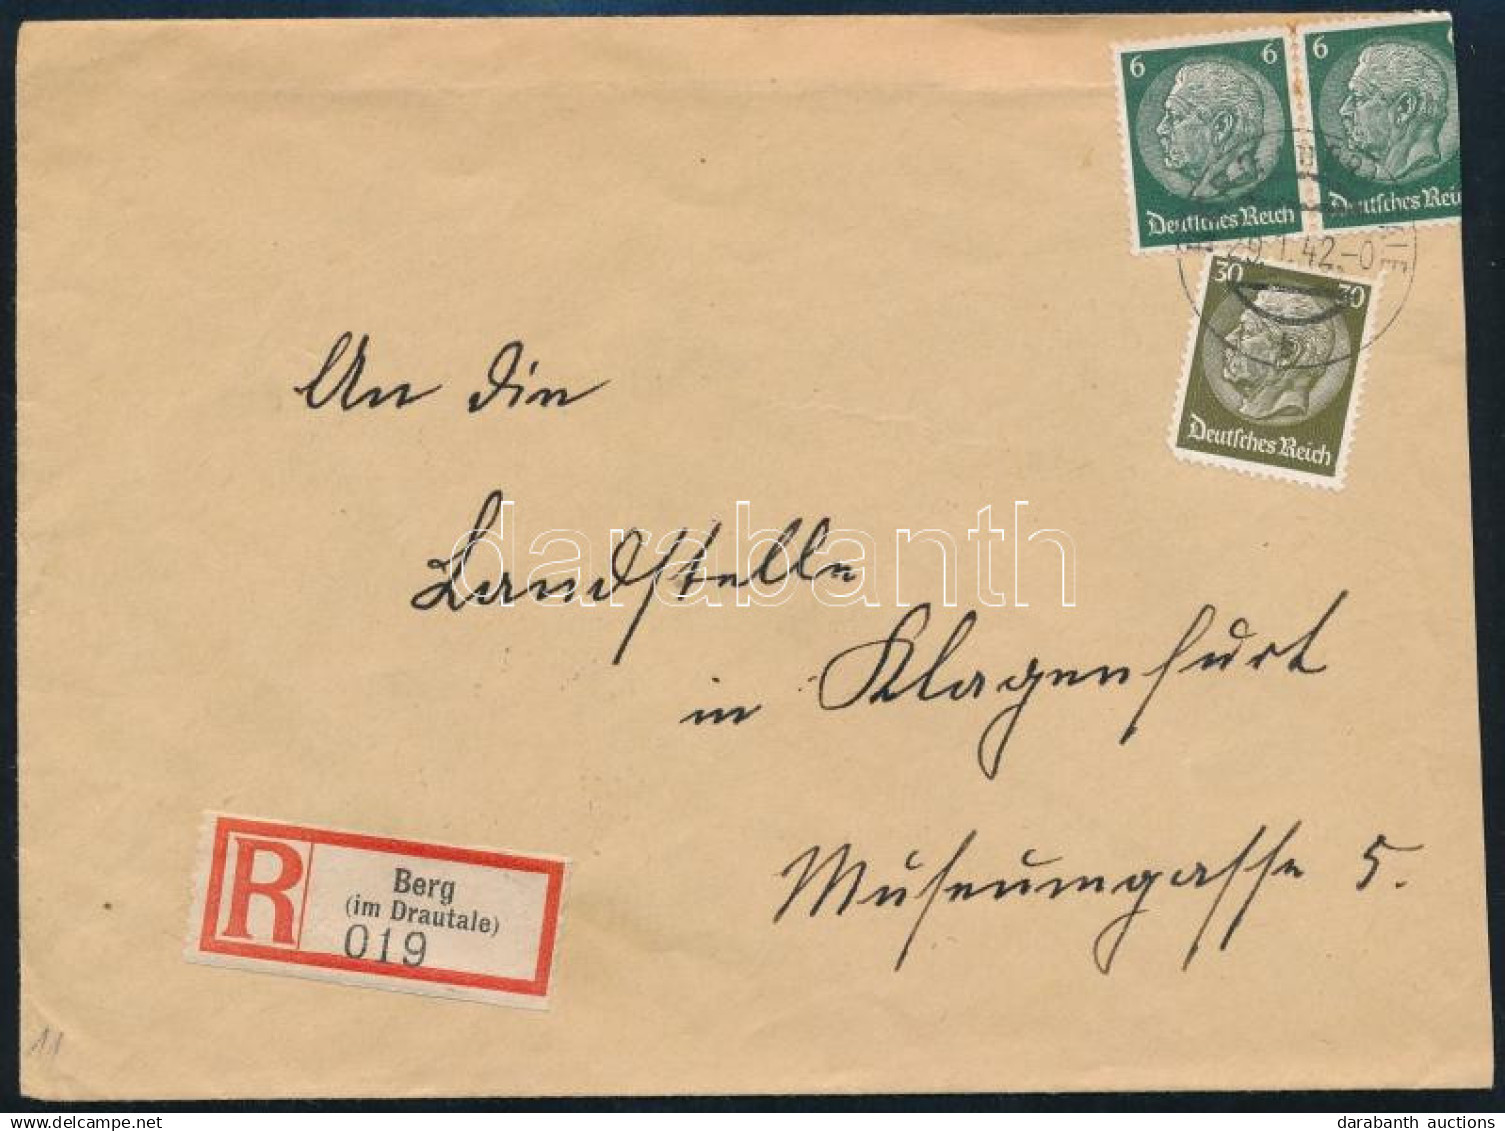 6 6
6
Deutsches Reich
Deutsches Rei
29.1.42.-0
30 30
Deutsches Reich
An die
Landstelle
in Klagenfurt
Museumgasse 5.
darabanth
R
Berg
(im Drautale)
019
11
darabanth auctions